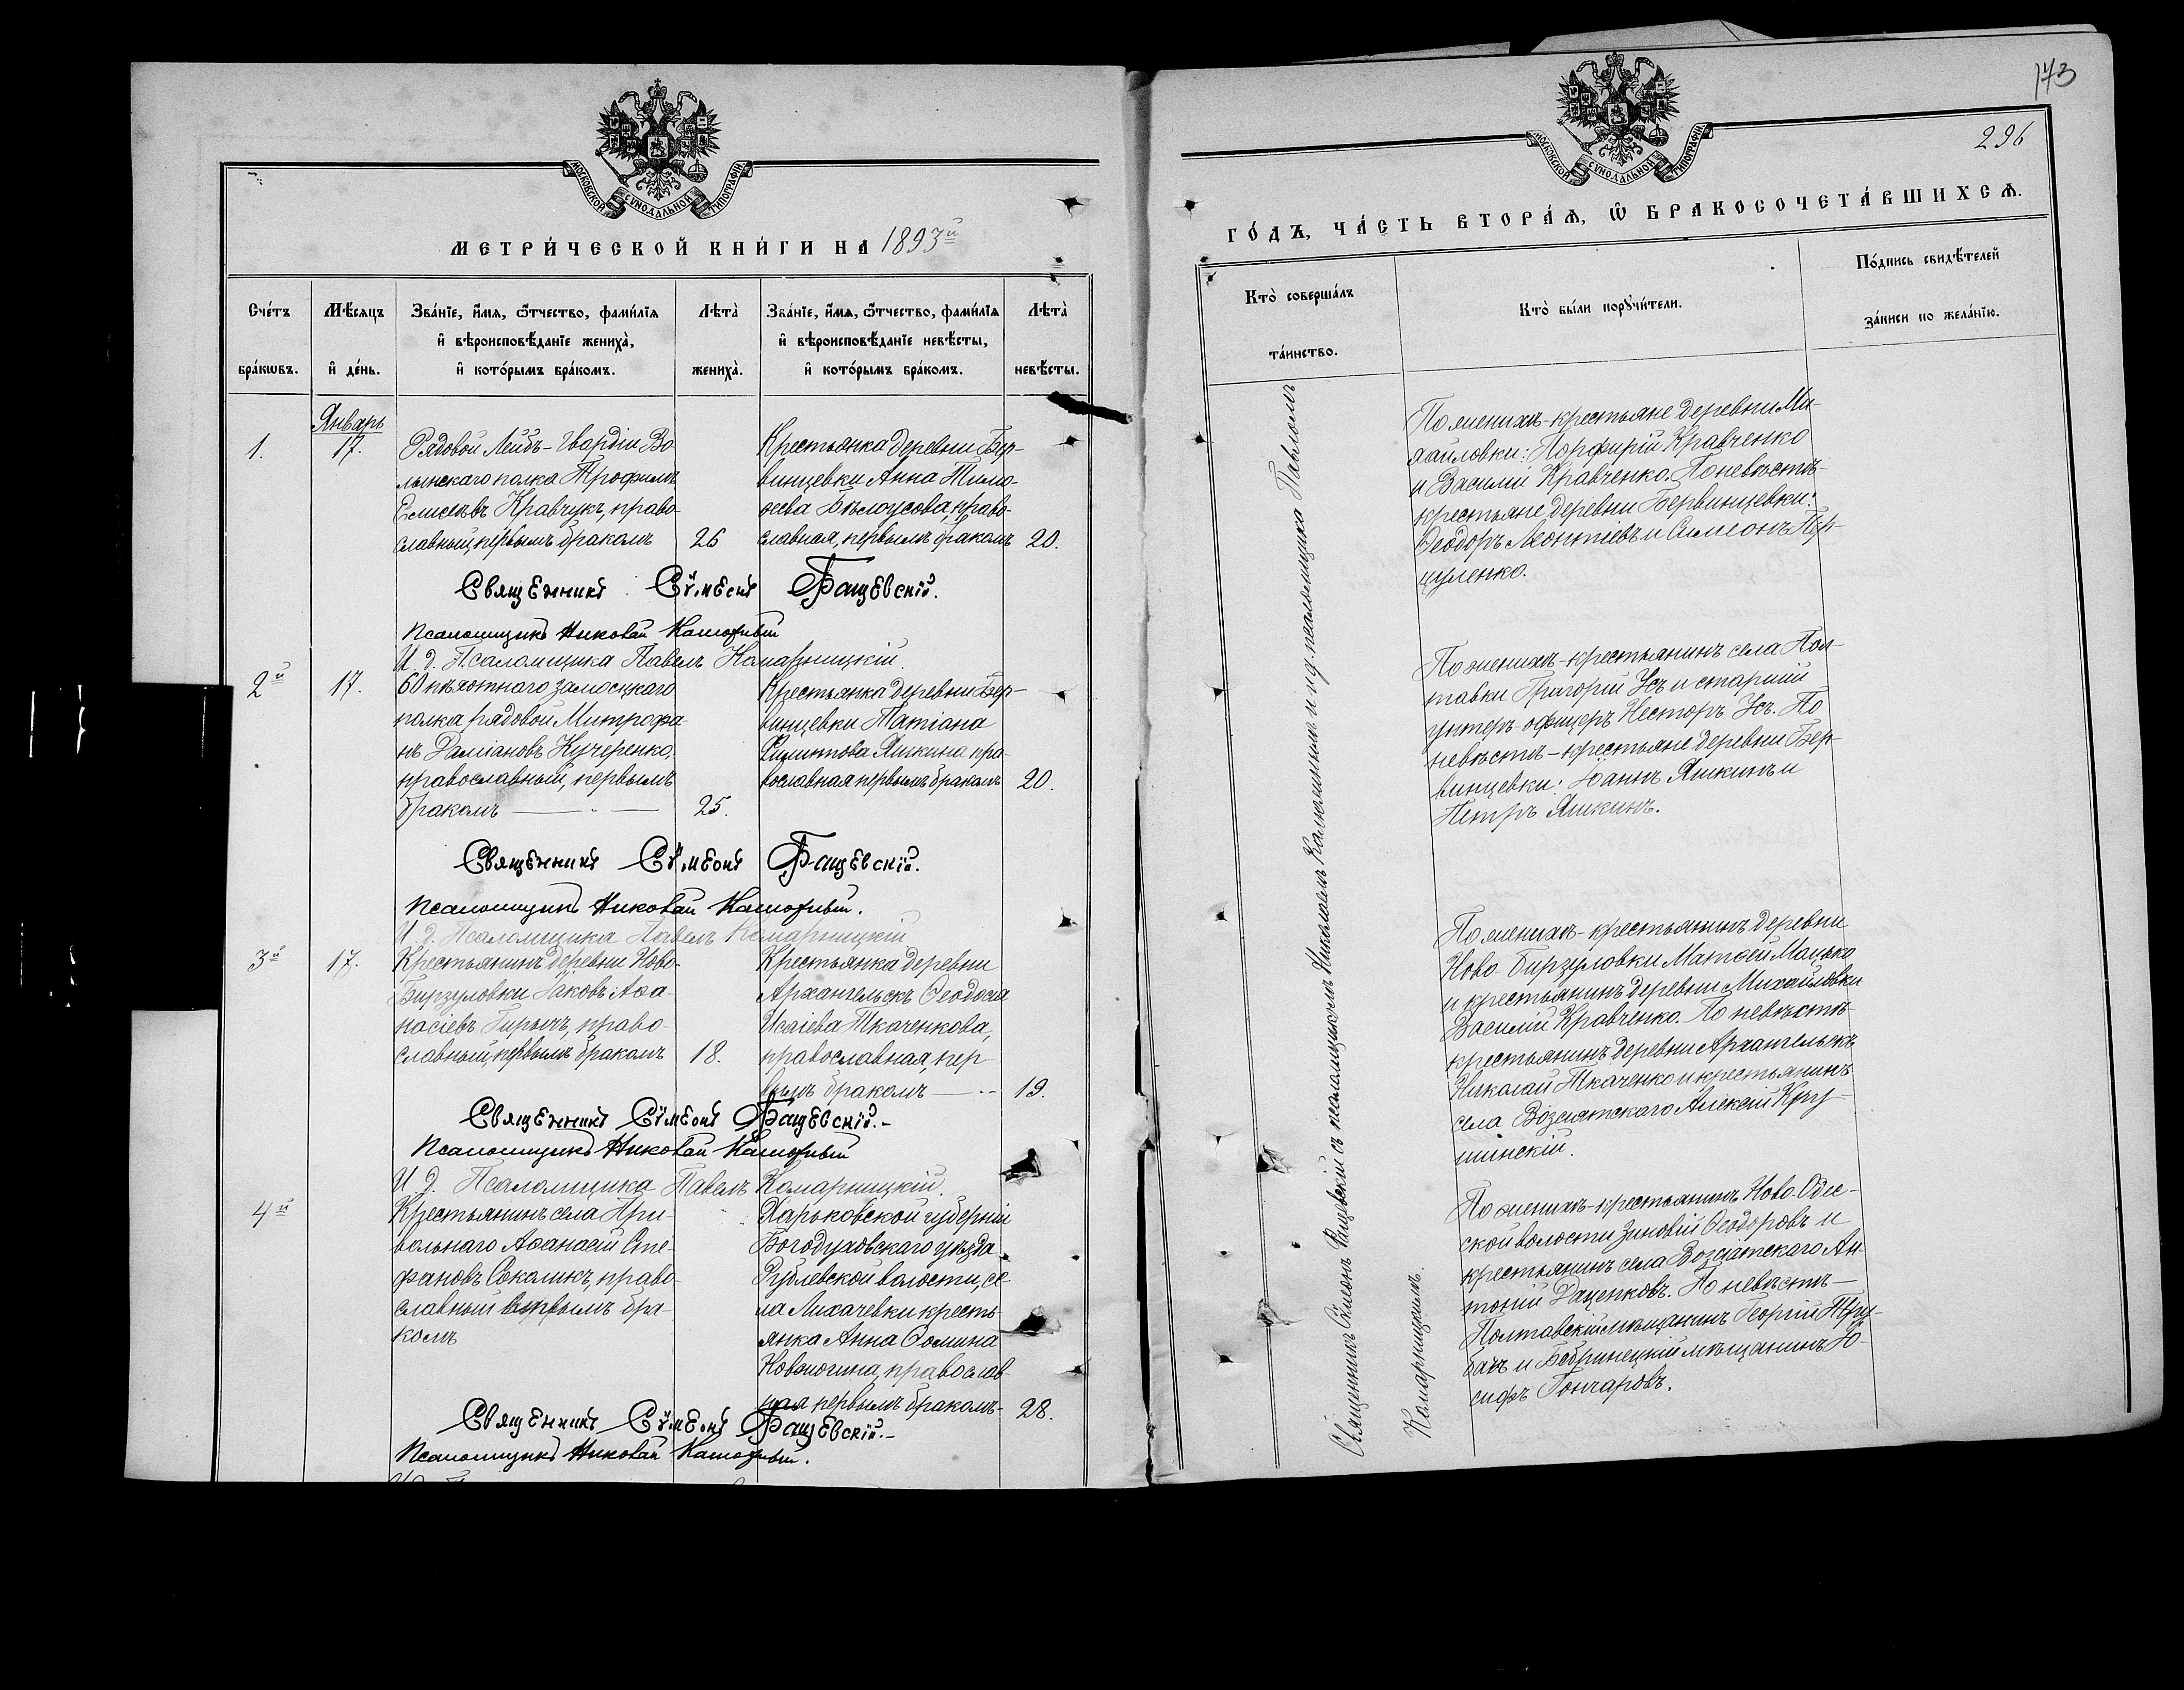 МОСКОВСКОЙ СѴНОДАЛЬНОЙ ТИПОГРАФІИ
МЕТРИ́ЧЕСКОЙ КНИ́ГИ НА 1893й
Сче́тъ бра́кѡвъ.
Мѣ́сяцъ и҆ де́нь.
Зва́нїе, и҆́мя, ѻ҆́тчество, фами́лїя
и҆ вѣроисповѣ́данїе жениха̀,
и҆ кото́рымъ бра́комъ.
Лѣта̀ жениха̀.
Зва́нїе, и҆́мя, ѻ҆́тчество, фами́лїя
и҆ вѣроисповѣ́данїе невѣ́сты,
и҆ кото́рымъ бра́комъ.
Лѣта̀ невѣ́сты.
Январь
1.
17.
Рядовой Лейбъ-Гвардіи Во
лынскаго полка Трофимъ
Елисѣевъ Кравчукъ, право
славный, первымъ бракомъ
26
Крестьянка деревни Бер-
винцевки Анна Тимо-
ѳеева Бѣлоусова, право-
славная, первымъ бракомъ
20.
Священникъ Сѵмеонъ Ращевскій.
Псаломщикъ Николай
И. д. Псаломщика Павелъ Комарницкій.
2й
17.
60 пѣхотнаго Замосцкаго
полка рядовой Митрофа
нъ Даміановъ Кучеренко,
православный, первымъ
бракомъ
25.
Крестьянка деревни Бер-
винцевки Татіана
Филиппова Яшкина пра-
вославная первымъ бракомъ
20.
Священникъ Сѵмеонъ Ращевскій.
Псаломщикъ Николай
И. д. Псаломщика Павелъ Комарницкій
3й
17.
Крестьянинъ деревни Ново-
Бирзуловки Іаковъ Аѳа-
насіевъ право-
славный, первымъ бракомъ
18.
Крестьянка деревни
Архангельскъ Ѳеодосія
Исаіева Ткаченкова,
православная, пер
вымъ бракомъ
19.
Священникъ Сѵмеонъ Ращевскій.-
Псаломщикъ Николай
И. д. Псаломщика Павелъ Комарницкій.
4й
Крестьянинъ села При-
вольнаго Аѳанасій Сте-
фановъ Соколикъ, право-
славный первымъ бра-
комъ
Харьковской губерніи
Богодуховскаго уѣзда
Рублевской волости, се-
ла Лихачевки кресть
янка Анна Ѳомина
православ-
ная первымъ бракомъ-
28.
Священникъ Сѵмеонъ Ращевскій.-
Псаломщикъ Николай
173
296
МОСКОВСКОЙ СѴНОДАЛЬНОЙ ТИПОГРАФІИ
ГО́ДЪ, ЧА́СТЬ ВТОРА́Ѧ, Ѽ БРАКОСОЧЕТА́ВШИХСѦ.
Кто̀ соверша́лъ
та́инство.
Кто̀ бы́ли порꙋчи́тели.
По́дпись свидѣ́телей
за́писи по жела́нїю.
Священникъ Сѵмеонъ Ращевскій съ псаломщикомъ Николаемъ и и. д. псаломщика Павломъ
Комарницкимъ.
По женихѣ-крестьяне деревни Ми-
хайловки: Порфирій Кравченко
и Василій Кравченко. По невѣстѣ-
крестьяне деревни Бервинцевки:
Ѳеодоръ Леонтіевъ и Симеонъ
По женихѣ-крестьянинъ села Пол-
тавки Григорій Усъ и старшій
унтеръ-офицеръ Несторъ Усъ. По
невѣстѣ-крестьяне деревни Бер-
винцевки: Іоаннъ Яшкинъ и
Петръ Яшкинъ.
По женихѣ-крестьянинъ деревни
Ново Бирзуловки Матѳей Мацько
и крестьянинъ деревни Михайловки
Василій Кравченко. По невѣстѣ-
крестьянинъ деревни Архангельскъ
Николай Ткаченко и крестьянинъ
села Возсіятскаго Алексій Кру-
шинскій.
По женихѣ-крестьянинъ Ново-Одес-
ской волости Зиновій Ѳеодоровъ и
крестьянинъ села Возсіятскаго Ан-
тоній Даценковъ. По невѣстѣ-
Полтавскій мѣщанинъ Георгій Тру-
бачъ и Бобринецкій мѣщанинъ Іо-
сифъ Гончаровъ.